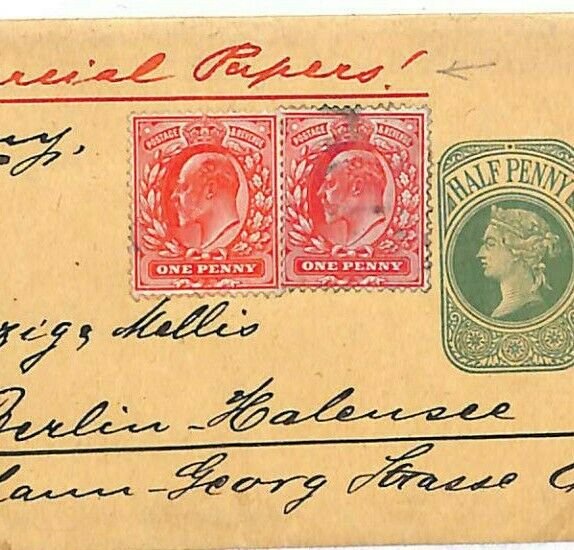 rcial Papers!
ny,
POSTAGE & REVENUE
ONE PENNY
POSTAGE & REVENUE
ONE PENNY
HALF PENNY
zig & Mellis
Berlin-Halensee
Georg Strasse